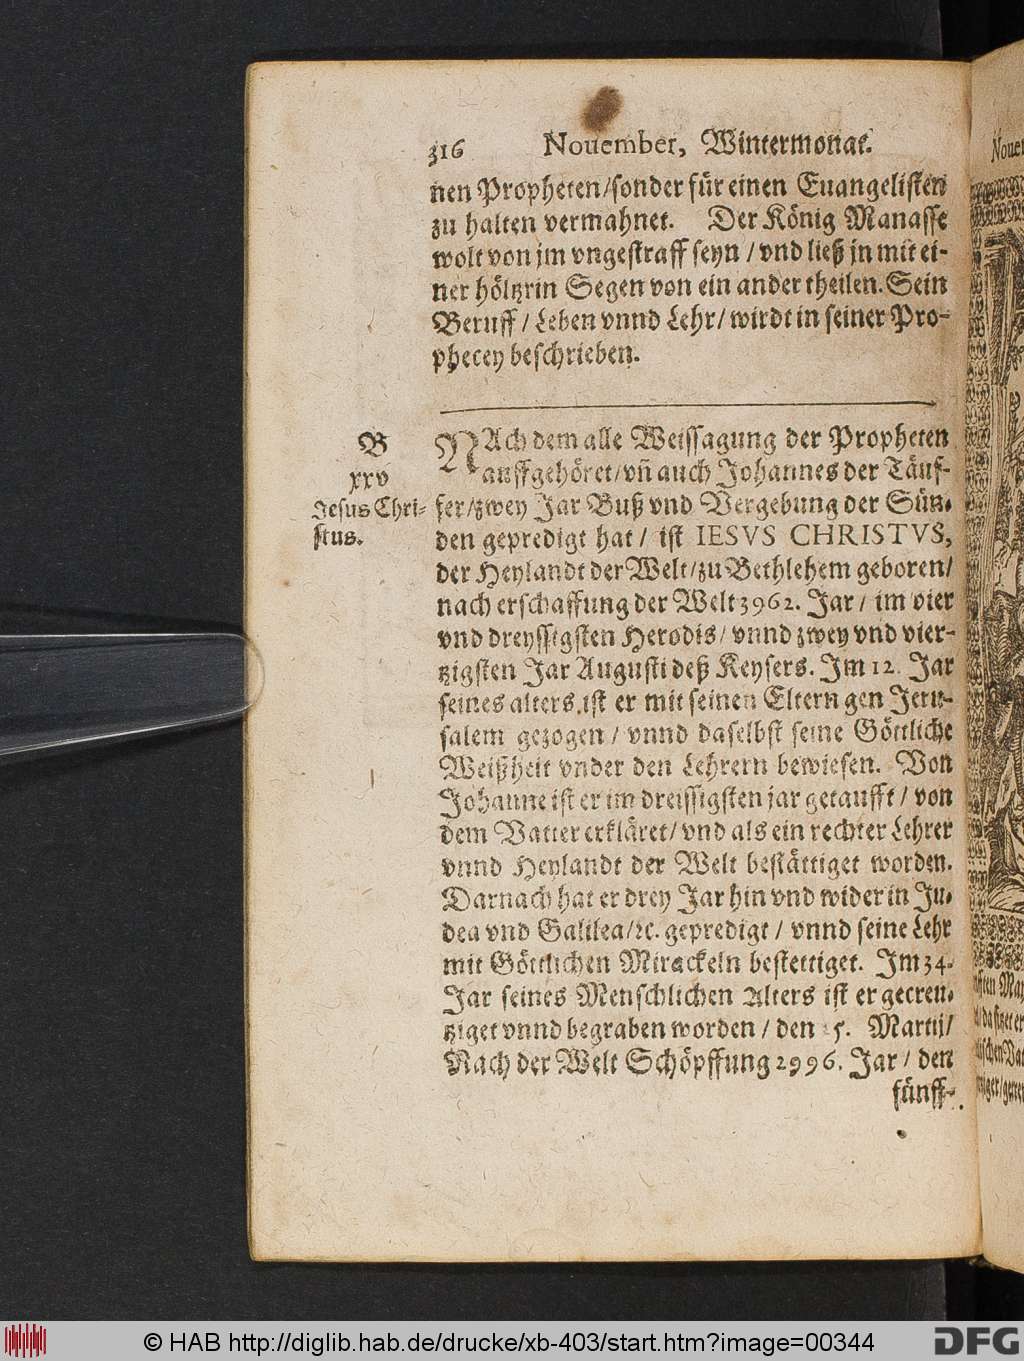 316 Nouember, Wintermonat.
nen Propheten/sonder für einen Euangelisten
zu halten vermahnet. Der König Manasse
wolt von jm vngestraff seyn / vnd ließ jn mit ei-
ner höltzrin Segen von ein ander theilen. Sein
Beruff / Leben vnnd Lehr/ wirdt in seiner Pro-
phecey beschrieben.
B
xxv
Jesus Chri-
stus.
NAch dem alle Weissagung der Propheten
auffgehöret/vñ auch Johannes der Täuf-
fer/zwey Jar Buß vnd Vergebung der Sün-
den gepredigt hat / ist IESVS CHRISTVS,
der Heylandt der Welt/zu Bethlehem geboren/
nach erschaffung der Welt 3962. Jar / im vier
vnd dreyssigsten Herodis/ vnnd zwey vnd vier-
tzigsten Jar Augusti deß Keysers. Im 12. Jar
seines alters, ist er mit seinen Eltern gen Jeru-
salem gezogen / vnnd daselbst seine Göttliche
Weißheit vnder den Lehrern bewiesen. Von
Johanne ist er im dreissigsten jar getaufft / von
dem Vatter erkläret/ vnd als ein rechter Lehrer
vnnd Heylandt der Welt bestättiget worden.
Darnach hat er drey Jar hin vnd wider in Ju-
dea vnd Galilea/ꝛc. gepredigt / vnnd seine Lehr
mit Göttlichen Mirackeln bestettiget. Im 34.
Jar seines Menschlichen Alters ist er gecreu-
tziget vnnd begraben worden / den 5. Martij/
Nach der Welt Schöpffung 2996. Jar / den
fünff-
© HAB http://diglib.hab.de/drucke/xb-403/start.htm?image=00344
DFG